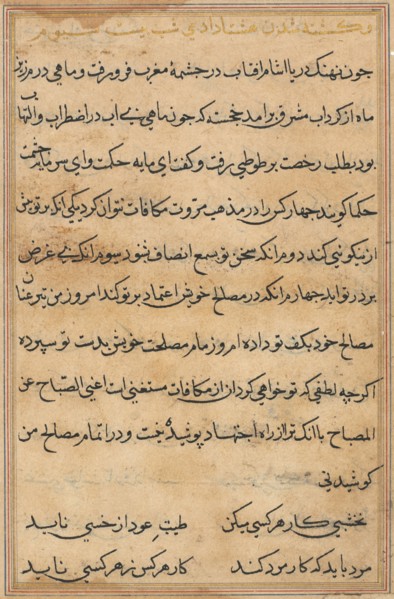 و کشته شدن شب بیست سیوم
چون نهنک دریا اشام افتاب در چشمهٔ مغرب فرو رفت و ماهی در مرزین
ماه از کرداب مشرق برامد خجسته که چون ماهی بی اب در اضطراب و التهاب
بود بطلب رخصت بر طوطی رفت و کفت ای مایه حکمت و ای سرمایه حشمت
حکما کویند چهار کس را در مذهب مروت مکافات نتوان کرد یکی انکه بر تو پیش
از نیکویی کند دوم انکه سخن تو بسمع انصاف شنود سیوم انکه بی غرض
بر در تو اید چهارم انکه در مصالح خویش اعتماد بر تو کند امروز من نیز عنان
مصالح خود بکف تو داده ام و زمام مصلحت خویش بدست تو سپرده
اکرچه لطفی که تو خواهی کرد از ان مکافات مستغنی است اغنی الصباح عن
المصباح با انک ترا از راه اجتهاد پوشیدهٔ نیست و در اتمام مصالح من
کوشیدنی
نخشبی کار هر کسی میکن طیب عود از خسی ناید
مرد باید که کار مرد کند کار هر کس ز هر کسی ناید